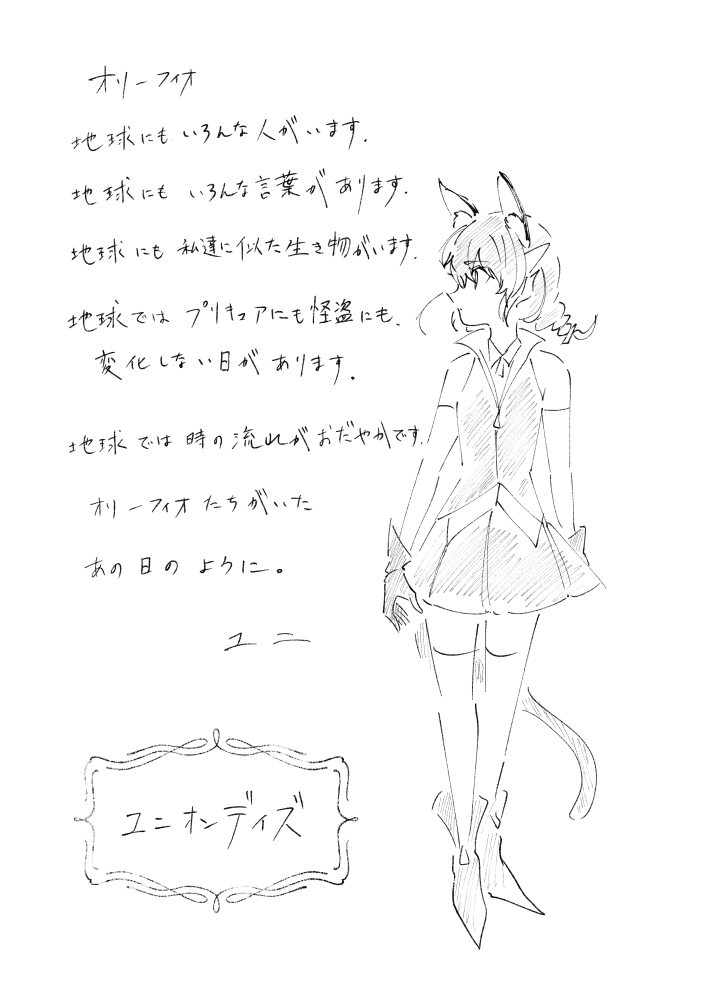 オリーフィオ
地球にも いろんな人がいます.
地球にも いろんな言葉が あります.
地球にも 私達に似た生き物がいます.
地球では プリキュアにも怪盗にも.
変化しない日が あります.
地球では 時の流れが おだやかです.
オリーフィオ たちがいた
あの日の ように。
ユニ
ユニオンデイズ